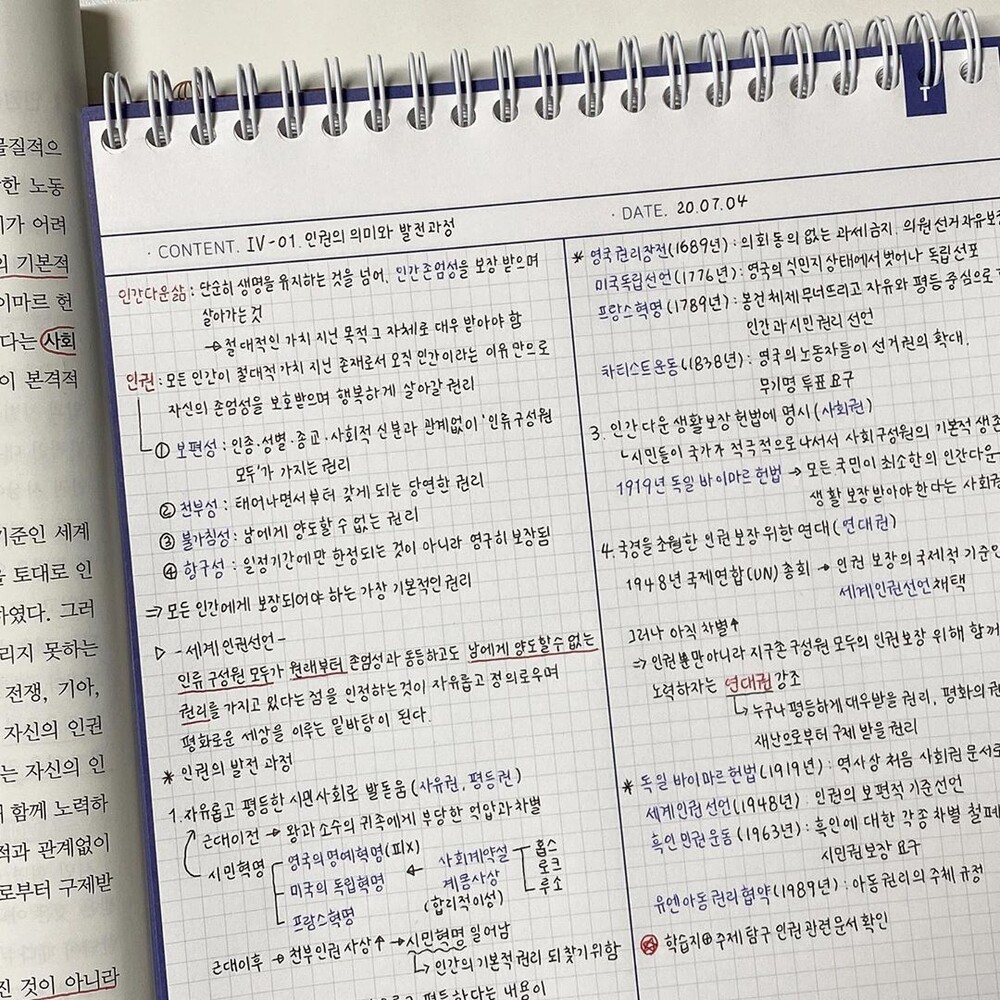 물질적으
한 노동
기가 어려
의 기본적
이마르 헌
다는 사회
이 본격적
기준인 세계
을 토대로 인
하였다. 그러
리지 못하는
전쟁, 기아,
자신의 인권
는 자신의 인
함께 노력하
적과 관계없이
로부터 구제받
진 것이 아니라
T
· CONTENT. IV-01. 인권의 의미와 발전과정
· DATE. 20.07.04
인간다운 삶 : 단순히 생명을 유지하는 것을 넘어, 인간 존엄성을 보장 받으며
살아가는 것
→ 절대적인 가치 지닌 목적 그 자체로 대우 받아야 함
인권 : 모든 인간이 절대적 가치 지닌 존재로서 오직 인간이라는 이유 만으로
자신의 존엄성을 보호받으며 행복하게 살아갈 권리
① 보편성 : 인종·성별·종교·사회적 신분과 관계없이 '인류 구성원
모두'가 가지는 권리
② 천부성 : 태어나면서부터 갖게 되는 당연한 권리
③ 불가침성 : 남에게 양도할 수 없는 권리
④ 항구성 : 일정기간에만 한정되는 것이 아니라 영구히 보장됨
⇒ 모든 인간에게 보장되어야 하는 가장 기본적인 권리
▷ - 세계 인권선언 -
인류 구성원 모두가 원래부터 존엄성과 동등하고도 남에게 양도할 수 없는
권리를 가지고 있다는 점을 인정하는 것이 자유롭고 정의로우며
평화로운 세상을 이루는 밑바탕이 된다.
* 인권의 발전 과정
1. 자유롭고 평등한 시민사회로 발돋움 (자유권, 평등권)
근대이전 → 왕과 소수의 귀족에게 부당한 억압과 차별
시민혁명
영국의 명예혁명 (피X)
미국의 독립혁명
프랑스혁명
← 사회계약설
계몽사상
(합리적이성)
홉스
로크
루소
근대이후 → 천부인권 사상↑ → 시민혁명 일어남
↳ 인간의 기본적 권리 되찾기 위함
평등하다는 내용이
* 영국 권리장전(1689년) : 의회 동의 없는 과세금지, 의원 선거 자유보장
미국독립선언(1776년) : 영국의 식민지 상태에서 벗어나 독립 선포
프랑스혁명(1789년) : 봉건 체제 무너뜨리고 자유와 평등 중심으로
인간과 시민 권리 선언
차티스트 운동(1838년) : 영국의 노동자들이 선거권의 확대,
무기명 투표 요구
3. 인간다운 생활보장 헌법에 명시 (사회권)
↳ 시민들이 국가가 적극적으로 나서서 사회구성원의 기본적 생존
1919년 독일 바이마르 헌법 → 모든 국민이 최소한의 인간다운
생활 보장받아야 한다는 사회권
4. 국경을 초월한 인권 보장 위한 연대 (연대권)
1948년 국제연합(UN) 총회 → 인권 보장의 국제적 기준인
세계인권선언 채택
그러나 아직 차별↑
⇒ 인권뿐만아니라 지구촌 구성원 모두의 인권보장 위해 함께
노력하자는 연대권 강조
↳ 누구나 평등하게 대우받을 권리, 평화의 권
재난으로부터 구제 받을 권리
* 독일 바이마르헌법(1919년) : 역사상 처음 사회권 문서로
세계인권 선언(1948년) : 인권의 보편적 기준선언
흑인 민권 운동(1963년) : 흑인에 대한 각종 차별 철폐
시민권 보장 요구
유엔아동권리 협약(1989년) : 아동 권리의 주체 규정
학습지⊕ 주제 탐구 인권 관련 문서 확인